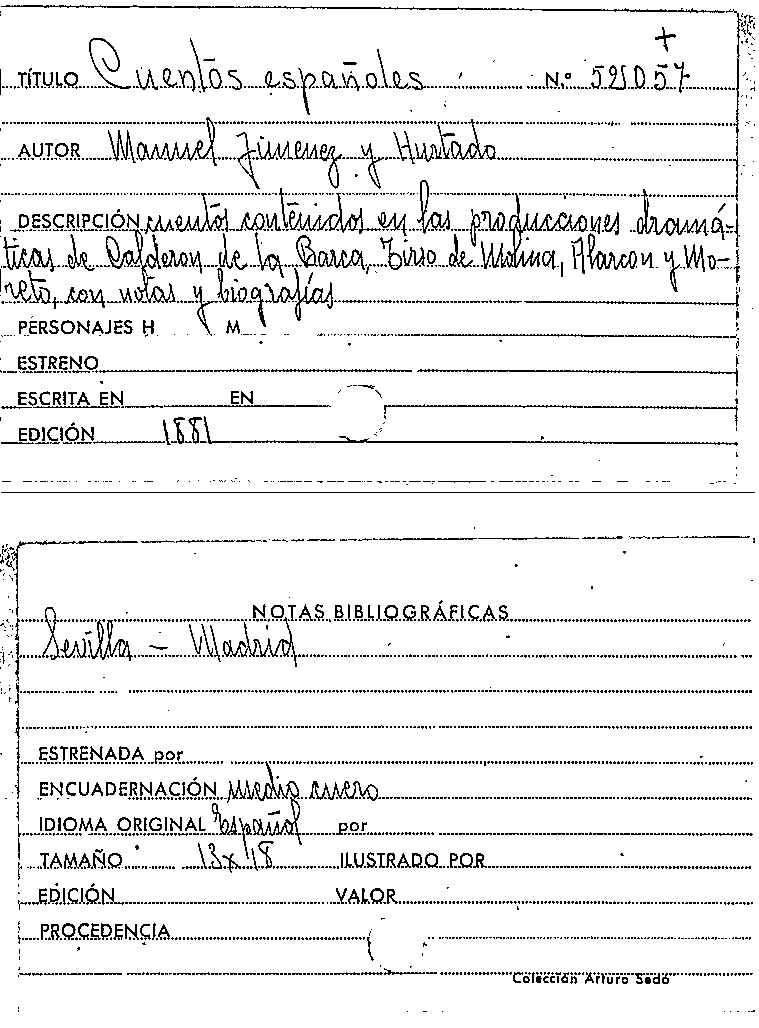 +
TÍTULO Cuentos españoles N.º 59057
AUTOR Manuel Jimenez y Hurtado
DESCRIPCIÓN cuentos contenidos en las producciones dramá-
ticas de Calderon de la Barca, Tirso de Molina, Alarcon y Mo-
reto, con notas y biografías
PERSONAJES H M
ESTRENO
ESCRITA EN EN
EDICIÓN 1881
NOTAS BIBLIOGRÁFICAS
Sevilla – Madrid
ESTRENADA por
ENCUADERNACIÓN medio cuero
IDIOMA ORIGINAL Español por
TAMAÑO 13x18 ILUSTRADO POR
EDICIÓN VALOR
PROCEDENCIA
Colección Arturo Sedó